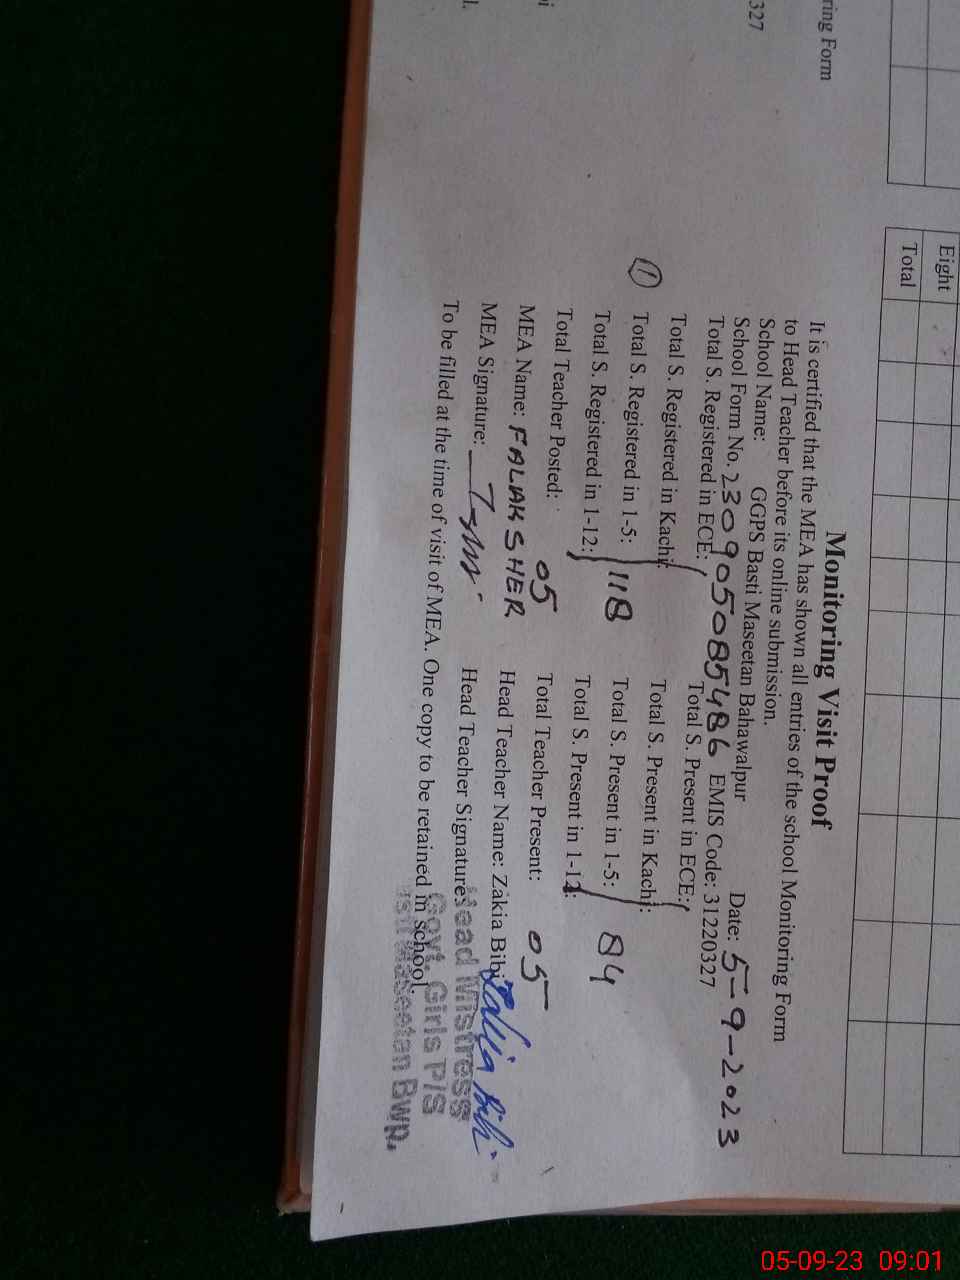 ring Form
327
Eight
Total
Monitoring Visit Proof
It is certified that the MEA has shown all entries of the school Monitoring Form
to Head Teacher before its online submission.
School Name: GGPS Basti Maseetan Bahawalpur Date: 5-9-2023
School Form No. 230905085486 EMIS Code: 31220327
Total S. Registered in ECE: Total S. Present in ECE:
Total S. Registered in Kachi: Total S. Present in Kachi:
① Total S. Registered in 1-5: 118 Total S. Present in 1-5: 84
Total S. Registered in 1-12: Total S. Present in 1-12:
Total Teacher Posted: 05 Total Teacher Present: 05
MEA Name: FALAK SHER Head Teacher Name: Zakia Bibi
MEA Signature: Head Teacher Signature: Zakia Bibi
To be filled at the time of visit of MEA. One copy to be retained in school.
Head Mistress
Govt. Girls P/S
Maseetan Bwp.
05-09-23 09:01